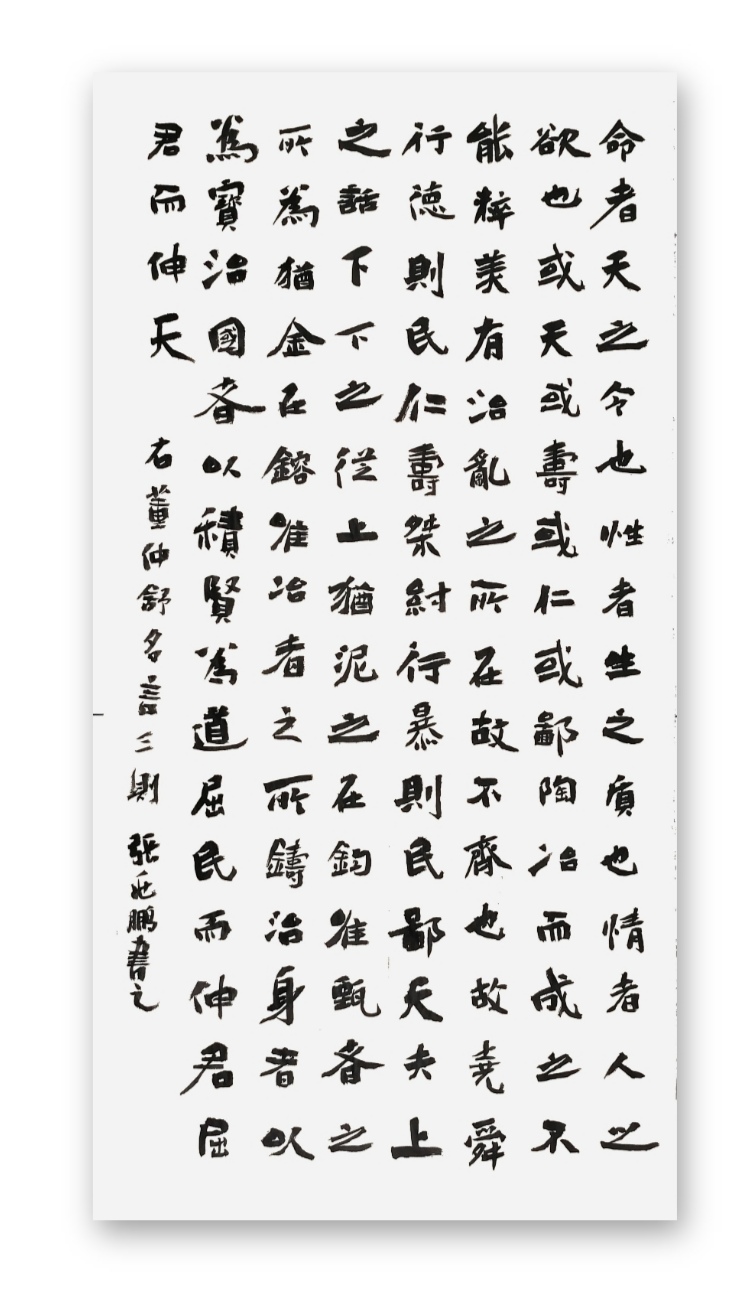 命者天之令也性者生之質也情者人之
欲也或夭或壽或仁或鄙陶冶而成之不
能粹美有治亂之所在故不齊也故堯舜
行德則民仁壽桀紂行暴則民鄙夭夫上
之話下下之從上猶泥之在鈞准甄者之
所為猶金在鎔准冶者之所鑄治身者以
為寶治國者以積賢為道屈民而伸君屈
君而伸天
右董仲舒名言三則 張兆鵬書之